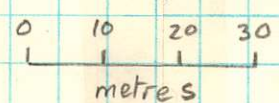 0 10 20 30
metres